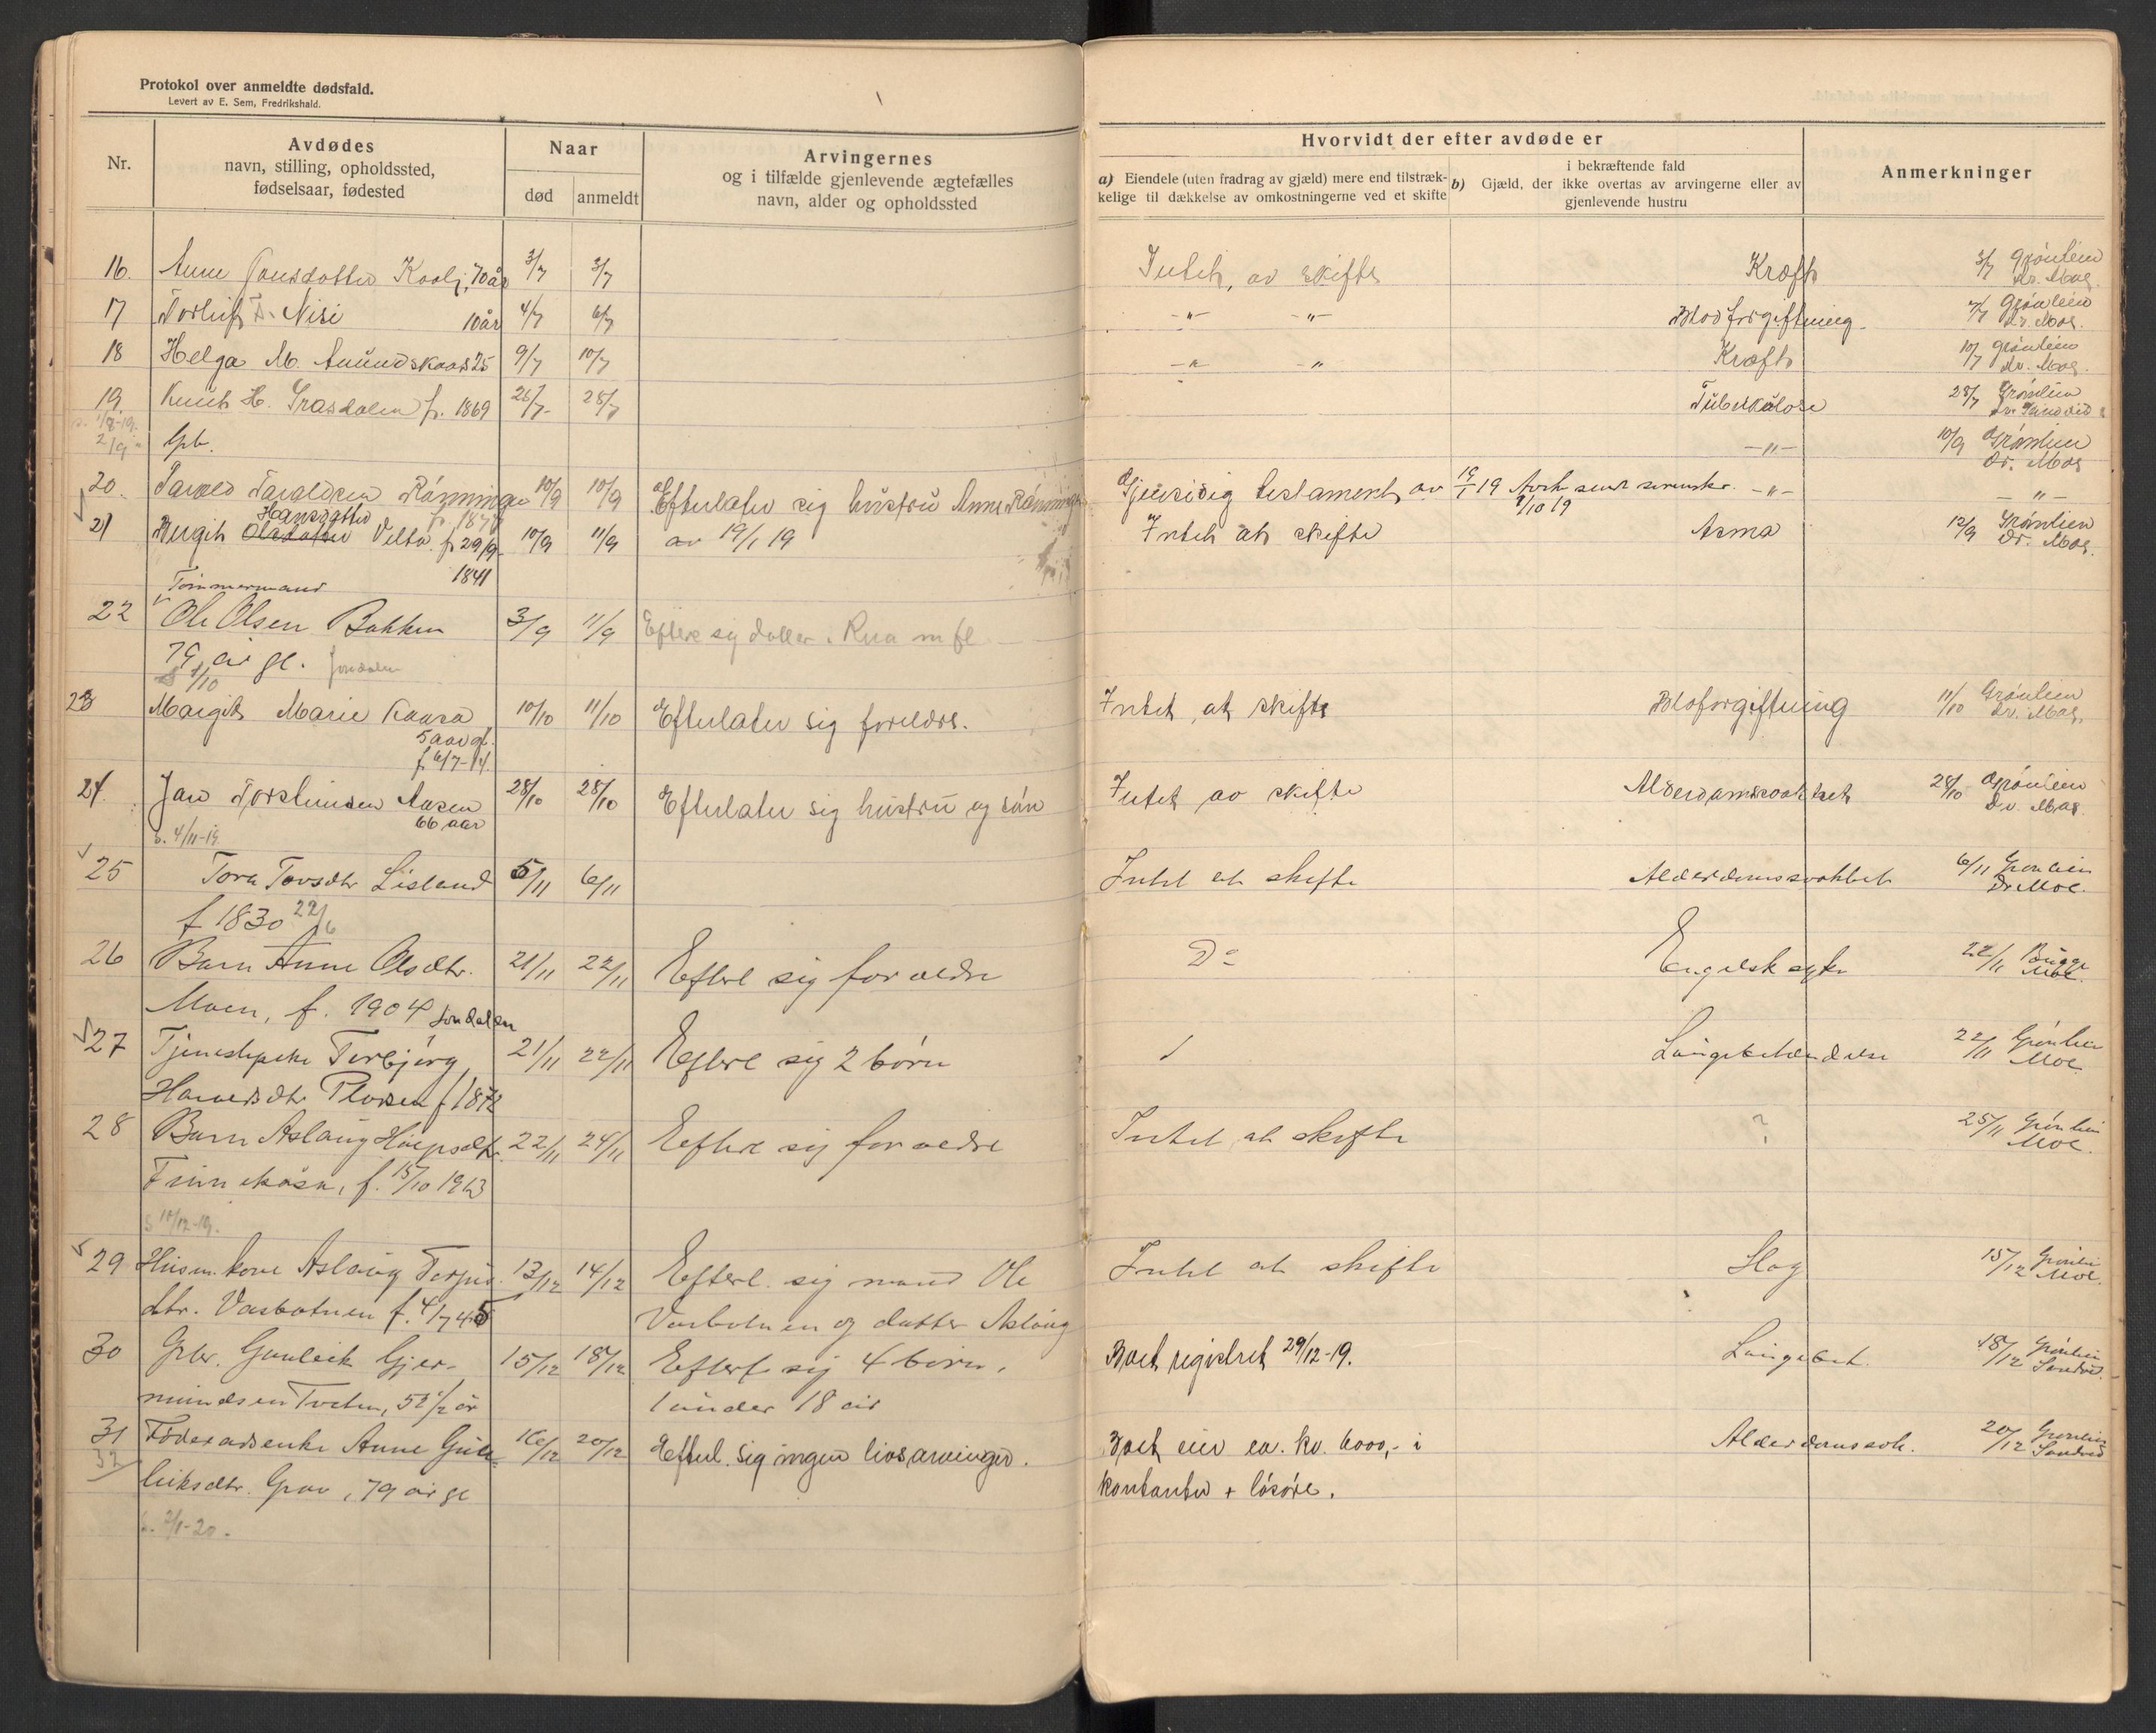 Protokol over anmeldte dødsfald.
Levert av E. Sem, Fredrikshald.
Nr.
Avdødes
navn, stilling, opholdssted,
fødselsaar, fødested
Naar
død
anmeldt
Arvingernes
og i tilfælde gjenlevende ægtefælles
navn, alder og opholdssted
Hvorvidt der efter avdøde er
a) Eiendele (uten fradrag av gjæld) mere end tilstræk-
kelige til dækkelse av omkostningerne ved et skifte
i bekræftende fald
b) Gjæld, der ikke overtas av arvingerne eller av
gjenlevende hustru
Anmerkninger
16. Anne 70 år 3/7 3/7 Intet av skifte Kræft 3/7 Grønlien
Dr. Moe.
17 Torleif Nisi 10 år 4/7 6/7 -"- -"- Blodforgiftning 7/7 Grønlien
Dr. Moe.
18 Helga M. Amundskaas 25 9/7 10/7 -"- -"- Kræft 10/7 Grønlien
Dr. Moe.
19 Knut H. Grasdalen f. 1869 26/7 28/7 Tuberkulose 28/7 Grønlien
Gb. -"- 10/9 Grønlien
Dr. Moe
20. Tarald Taraldsen Rønningen 10/9 10/9 Efterlater sig hustru Anne Rønningen Gjensidig testament av 19/1 19 -"- -"-
av 19/1 19
9/10 19
21 Birgit Hansdatter Olsdatter Velta f. 29/9- 10/9 11/9 Intet at skifte Asma 12/9 Grønlien
1841 Dr. Moe.
Tømmermand
22 Ole Olsen Bakken 3/9 11/9 Efterl sig datter Rua m fl
79 år gl. Jondalen
8/10
23 Margit Marie Kaasa 10/10 11/10 Efterlater sig forældre. Intet at skifte Bloforgiftning 11/10 Grønlien
5 aar gl. Dr. Moe.
f. 6/7-14.
24. Jan Torsteinsen Aasen 28/10 28/10 Efterlater sig hustru og søn Intet av skifte Alderdomssvakhet 28/10 Grønlien
66 aar Dr. Moe.
b. 4/11-19.
25 Tora Tovsdtr Lisland 5/11 6/11 Intet at skifte Alderdomssvakhet 6/11 Grønlien
f 1830 22/6 Dr Moe.
26 Barn Anne Olsdtr. 21/11 22/11 Efterl sig forældre Do Engelsk syke 22/11 Bugge
Moen, f. 1904 Jondalen Moe.
27 Tjenestepike Torbjørg 21/11 22/11 Efterl sig 2 børn Lungebetændelse 22/11 Grønlien
f 1872 Moe
28 Barn Aslaug 22/11 24/11 Efterl sig forældre Intet at skifte ? 25/11 Grønlien
f. 15/10 1913 Moe.
b 10/12-19.
29 Husm. kone Aslaug Terjus 13/12 14/12 Efterl. sig mand Ole Intet at skifte Slag 15/12 Grønlien
dtr. Vasbotnen f. 4/7 45 Vasbotnen og datter Aslaug Moe.
30 Gbr. Gunleik Gjer- 15/12 18/12 Efterl sig 4 børn, Boet registret 29/12-19. Lungebet. 18/12 Grønlien
mundsen Tveten, 52 1/2 år 1 under 18 år Sandvid.
31 Føderadsenke Anne Gun 16/12 20/12 Efterl. sig ingen livsarvinger. Boet eier ca. kr. 6000,- i Alderdomssvk. 20/12 Grønlien
32 leiksdtr. Grov, 79 år gl kontanter + løsøre. Sandvid
b. 2/1-20.